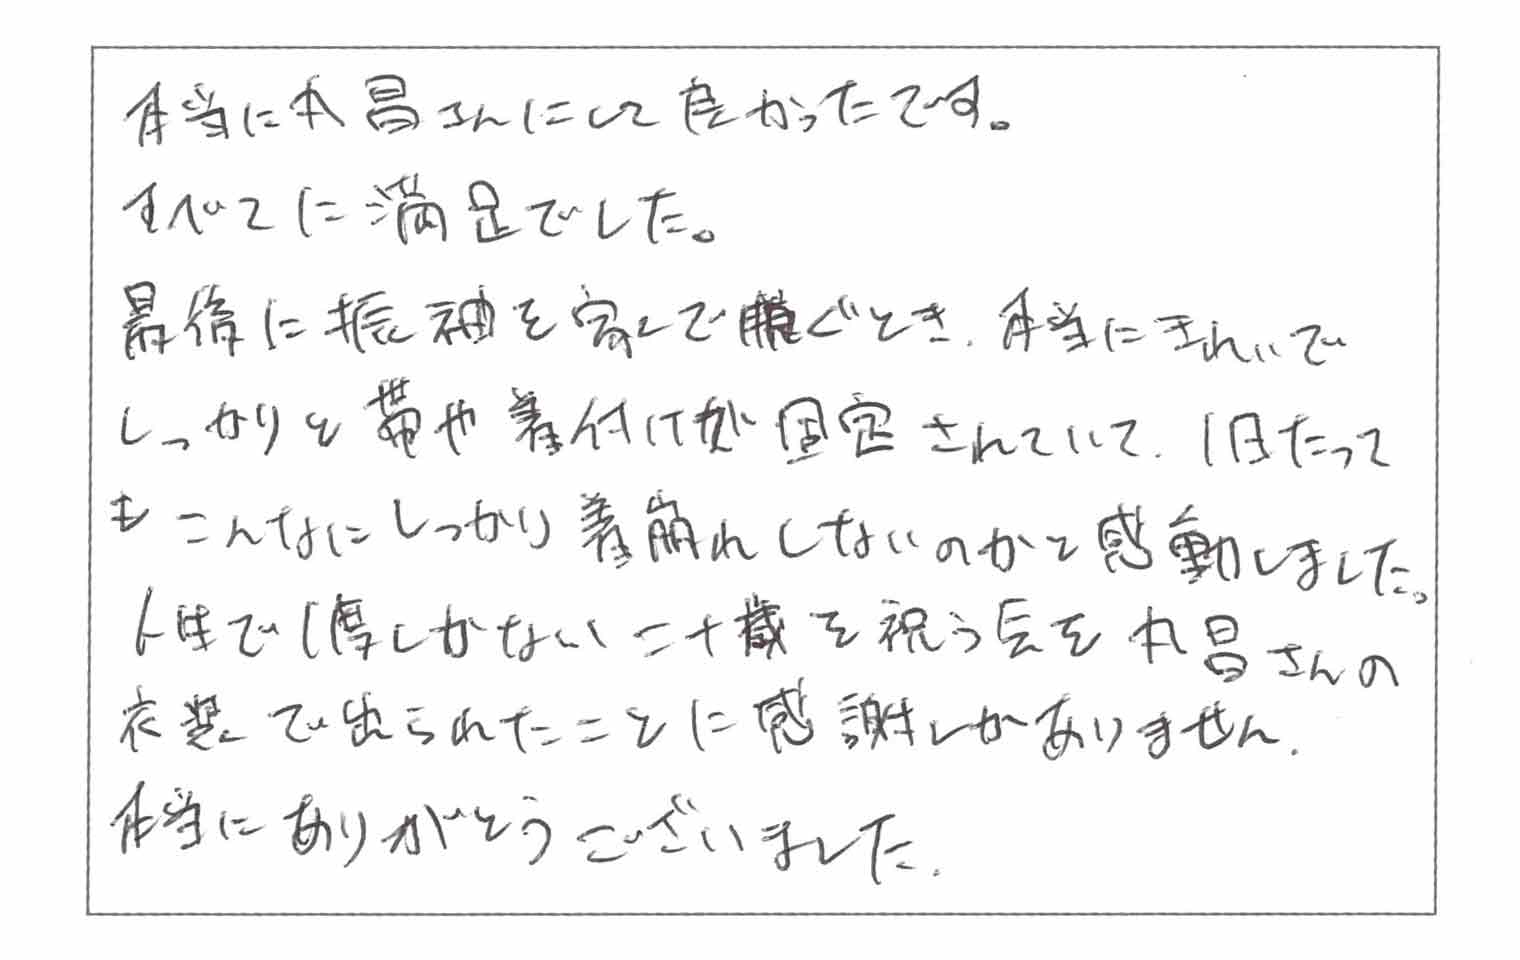 本当に丸昌さんにして良かったです。
すべてに満足でした。
最後に振袖を家で脱ぐとき、本当にきれいで
しっかりと帯や着付けが固定されていて、1日たって
もこんなにしっかり着崩れしないのかと感動しました。
人生で1度しかない二十歳を祝う会を丸昌さんの
衣装で出られたことに感謝しかありません。
本当にありがとうございました。